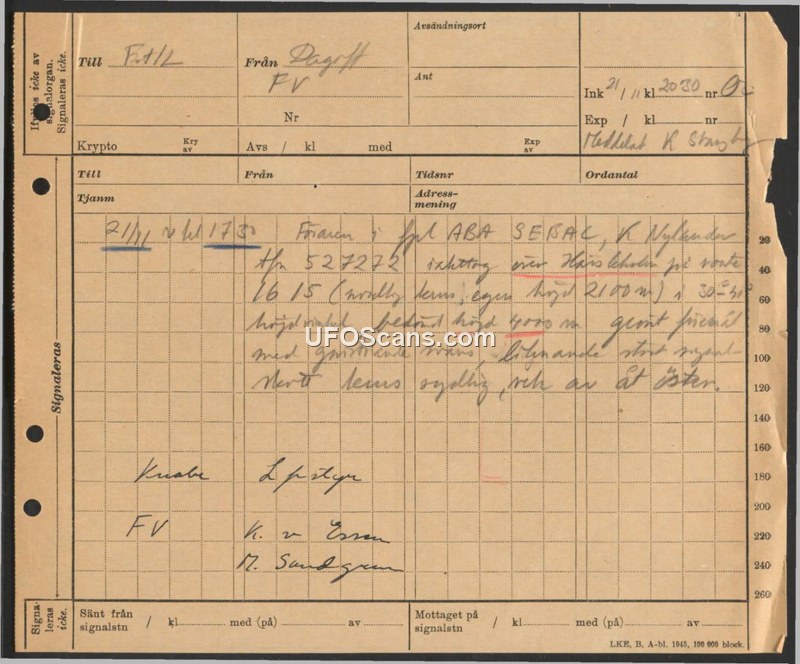 Avsändningsort
Till Fst/L Från Dagoff
FV
Ant
Ink 21/11 kl 2030 nr
Nr
Exp / kl nr
Krypto Kry av Avs / kl med Exp av
Meddelat K
Ifylles icke av signalorgan.
Signaleras icke.
Till Från Tidsnr Ordantal
Tjanm Adress-
mening
21/11 kl 1730 Föraren i fpl ABA SEBAC, K Nylander
tfn 527272 iakttog över Hässleholm på
1615 (nordlig kurs, egen höjd 2100 m) i 30-40°
bedömd höjd 4000 m grönt föremål
med svans, liknande stort signal-
skott kurs sydlig, vek av åt öster.
20
40
60
80
100
120
140
160
180
200
220
240
260
Signaleras
Knabe
FV K. v Essen
M. Sandgren
Signa-
leras
icke.
Sänt från
signalstn / kl med (på) av
Mottaget på
signalstn / kl med (på) av
LKE, B, A-bl. 1945, 100 000 block.
UFOScans.com